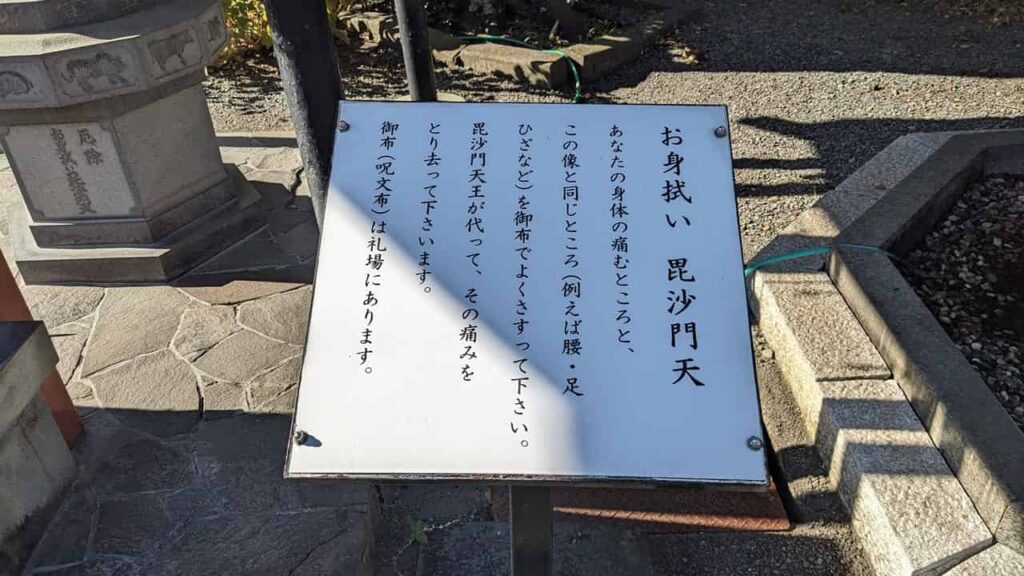 お身拭い 毘沙門天
あなたの身体の痛むところと、
この像と同じところ（例えば腰・足
ひざなど）を御布でよくさすって下さい。
毘沙門天王が代って、その痛みを
とり去って下さいます。
御布（呪文布）は札場にあります。
厄除